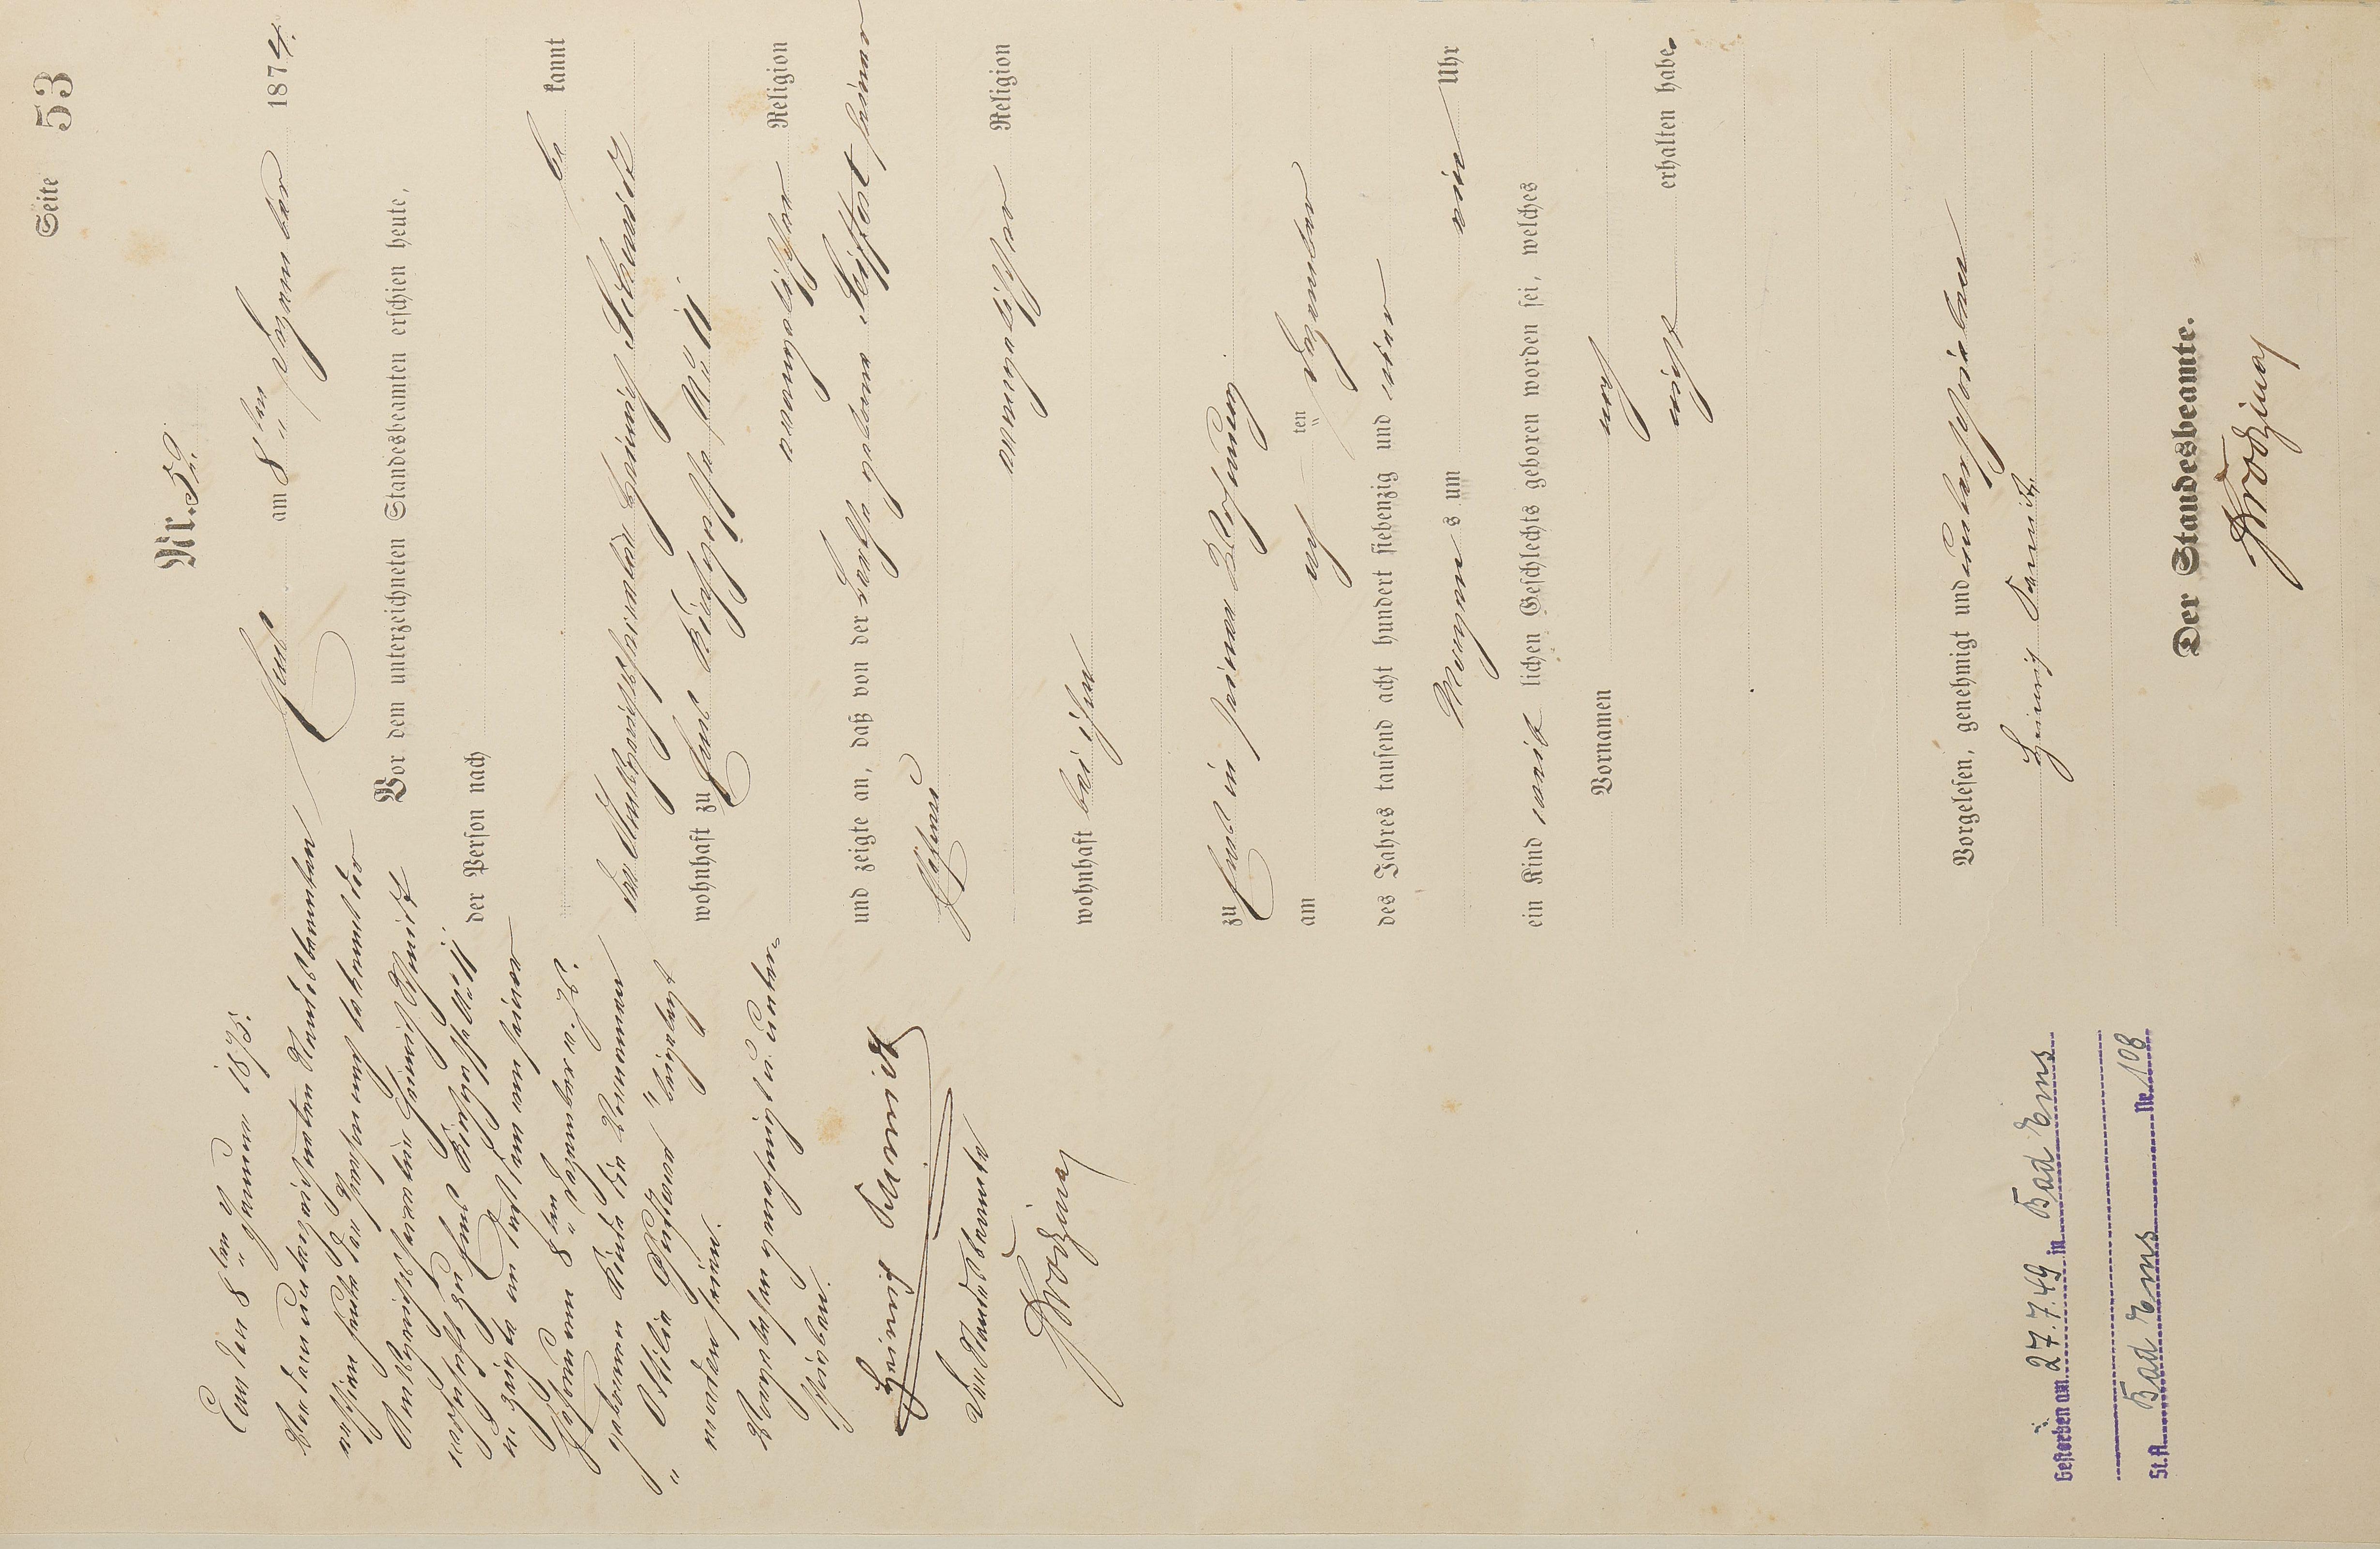 Seite 53
Nr. 53.
Ems am 8ten Dezember 1874.
Vor dem unterzeichneten Standesbeamten erschien heute,
der Person nach
be kannt
der Amtsgerichts Heinrich Schmidt
wohnhaft zu Ems Kirchgasse No 11
evangelischer Religion
und zeigte an, daß von der Bertha geborene Seiffert seiner
Ehefrau
evangelischer Religion
wohnhaft bei ihm
zu Ems in seiner Wohnung
am acht ten Dezember
des Jahres tausend acht hundert siebenzig und vier
Morgens um ein Uhr
ein Kind weib lichen Geschlechts geboren worden sei, welches
noch
Vornamen
nicht erhalten habe.
Vorgelesen, genehmigt und unterschrieben
Heinrich Schmidt.
Der Standesbeamte.
Ems den 8ten Januar 1875.
Vor dem unterzeichneten Standesbeamten
erschien heute der Person nach bekannt der
Heinrich Schmidt
wohnhaft zu Ems Kirchgasse No 11
u. zeigte an daß dem von seiner
Ehefrau am 8ten Dezember v. Js.
geborenen Kinde die Vornamen
"Ottilie Gustava" beigelegt
worden seien.
Vorgelesen genehmigt u. unter-
schrieben.
Heinrich Schmidt
Der Standesbeamte
Gestorben am 27.7.49 in Bad Ems
St.A. Bad Ems Nr. 108